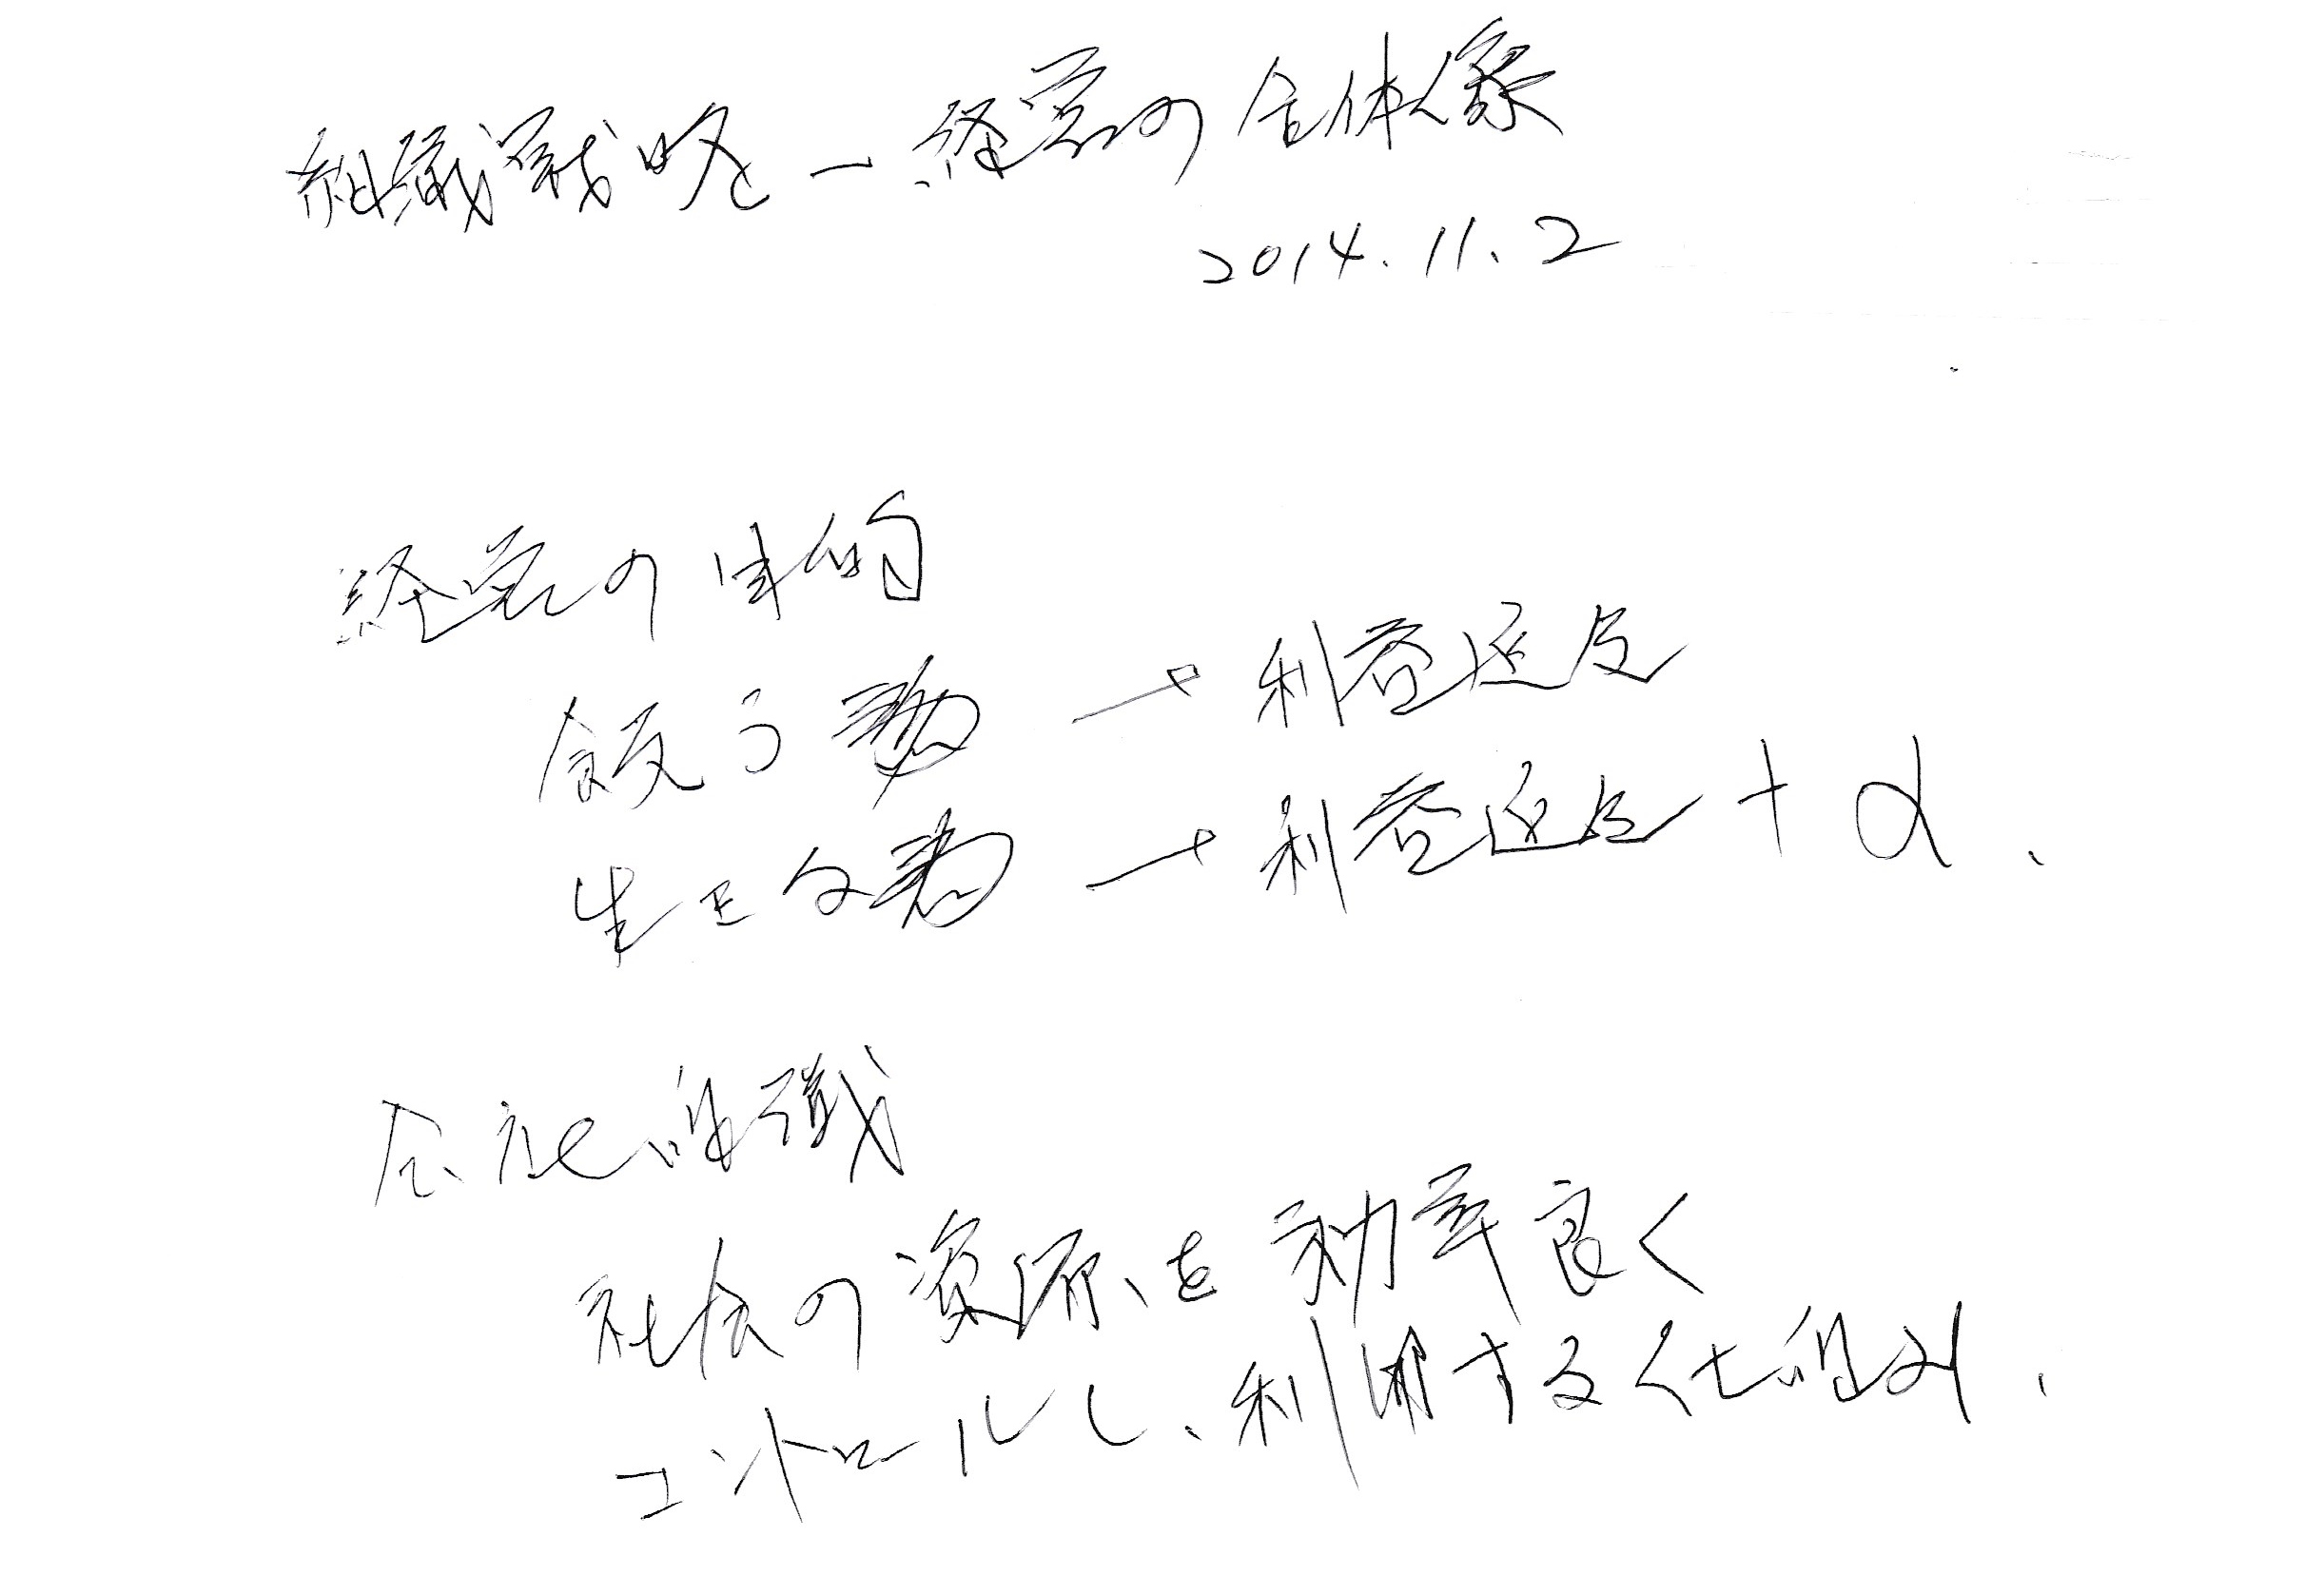 組織戦略ー経営の全体像
2014.11.2
経営の目的
飯
→ 利益追及
生
→ 利益追及 + α、
会社組織
社会の資源を効率良く
コントロールし、利用する仕組み、